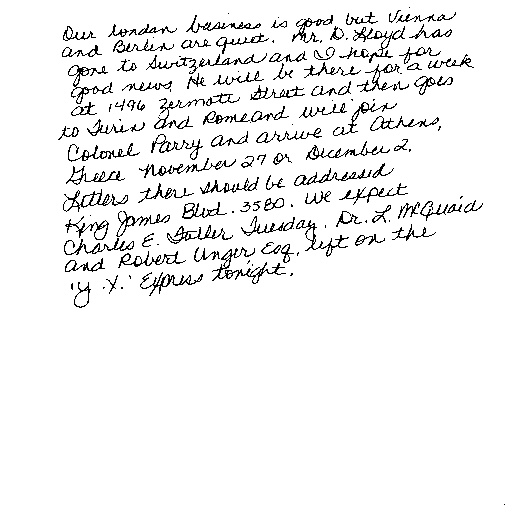 Our London business is good but Vienna
and Berlin are quiet. Mr. D. Lloyd has
gone to Switzerland and I hope for
good news. He will be there for a week
at 1496 Zermott Street and then goes
to Turin and Rome and will join
Colonel Parry and arrive at Athens,
Greece November 27 or December 2.
Letters there should be addressed
King James Blvd. 3580. We expect
Charles E. Fuller Tuesday. Dr. L. McQuaid
and Robert Unger Esq. left on the
'Y.X.' Express tonight.